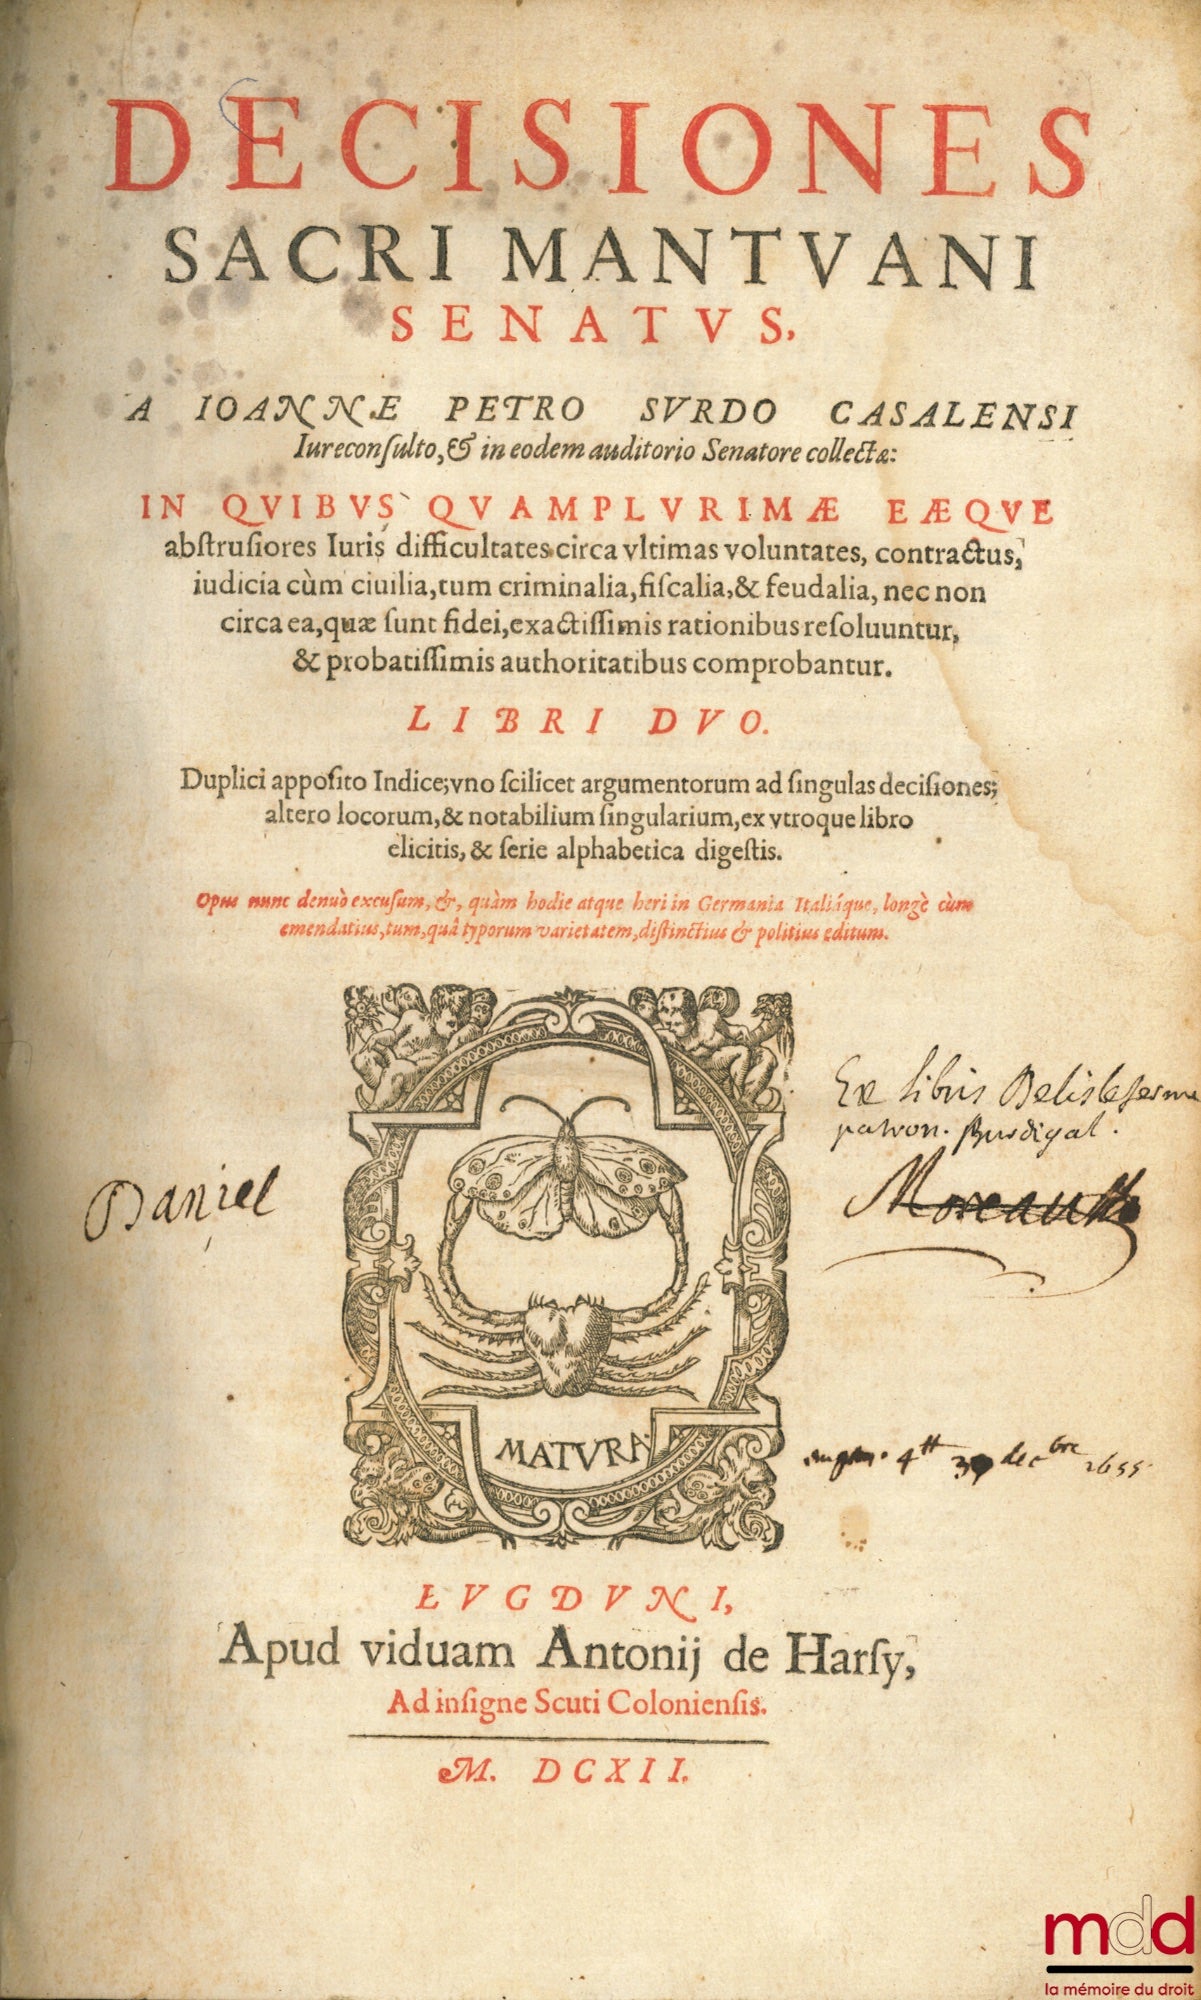 DECISIONES
SACRI MANTVANI
SENATVS,
A IOANNE PETRO SVRDO CASALENSI
Iureconſulto, & in eodem auditorio Senatore collectæ:
IN QVIBVS QVAMPLVRIMÆ EÆQVE
abſtruſiores Iuris difficultates circa vltimas voluntates, contractus,
iudicia cùm ciuilia, tum criminalia, fiſcalia, & feudalia, nec non
circa ea, quæ ſunt fidei, exactiſſimis rationibus reſoluuntur,
& probatiſſimis authoritatibus comprobantur.
LIBRI DVO.
Duplici appoſito Indice; vno ſcilicet argumentorum ad ſingulas deciſiones;
altero locorum, & notabilium ſingularium, ex vtroque libro
elicitis, & ſerie alphabetica digeſtis.
Opus nunc denuò excuſum, &, quàm hodie atque heri in Germania Italiáque, longè cùm
emendatius, tum, quâ typorum varietatem, diſtinctius & politius editum.
Ex libris
patron. Burdigal.
Moreau
Daniel
MATVRA
4 tt decbre 1655
LVGDVNI,
Apud viduam Antonij de Harſy,
Ad inſigne Scuti Colonienſis.
M. DCXII.
mdd
la mémoire du droit